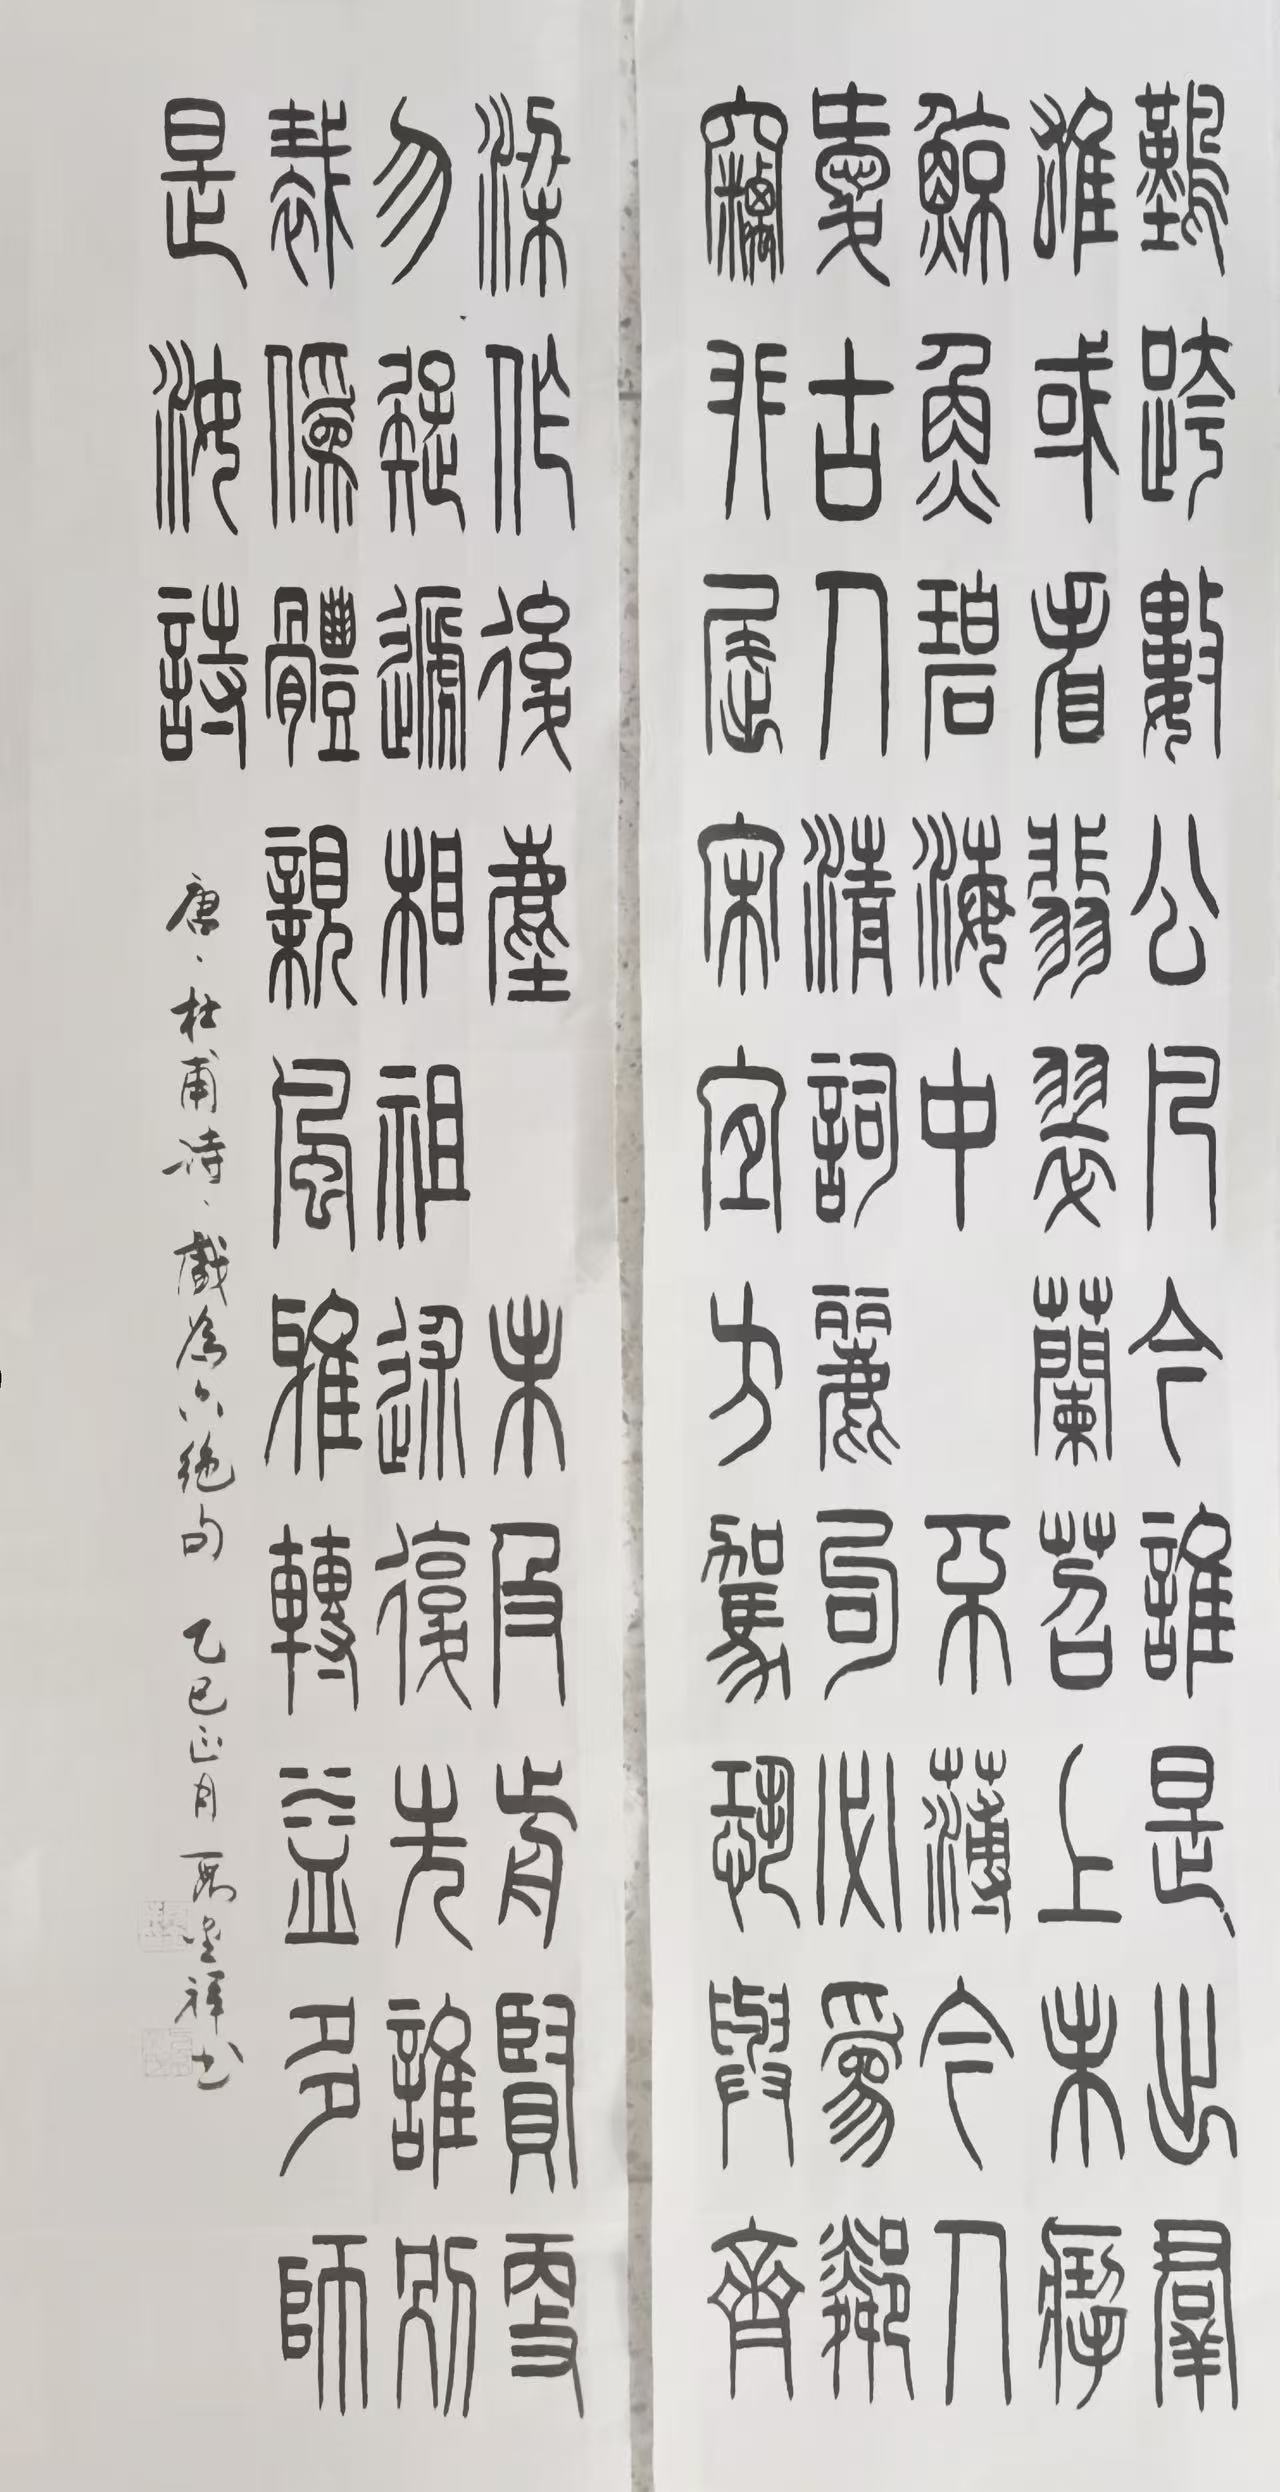 難跨數公凡今誰是出群
雄或看翡翠蘭苕上未掣
鯨魚碧海中 不薄今人
愛古人清詞麗句必為鄰
竊攀屈宋宜方駕恐與齊
梁作後塵 未及前賢更
勿疑遞相祖述復先誰別
裁偽體親風雅轉益多師
是汝詩
唐、杜甫诗、戲為六絕句 乙巳正月 祥书